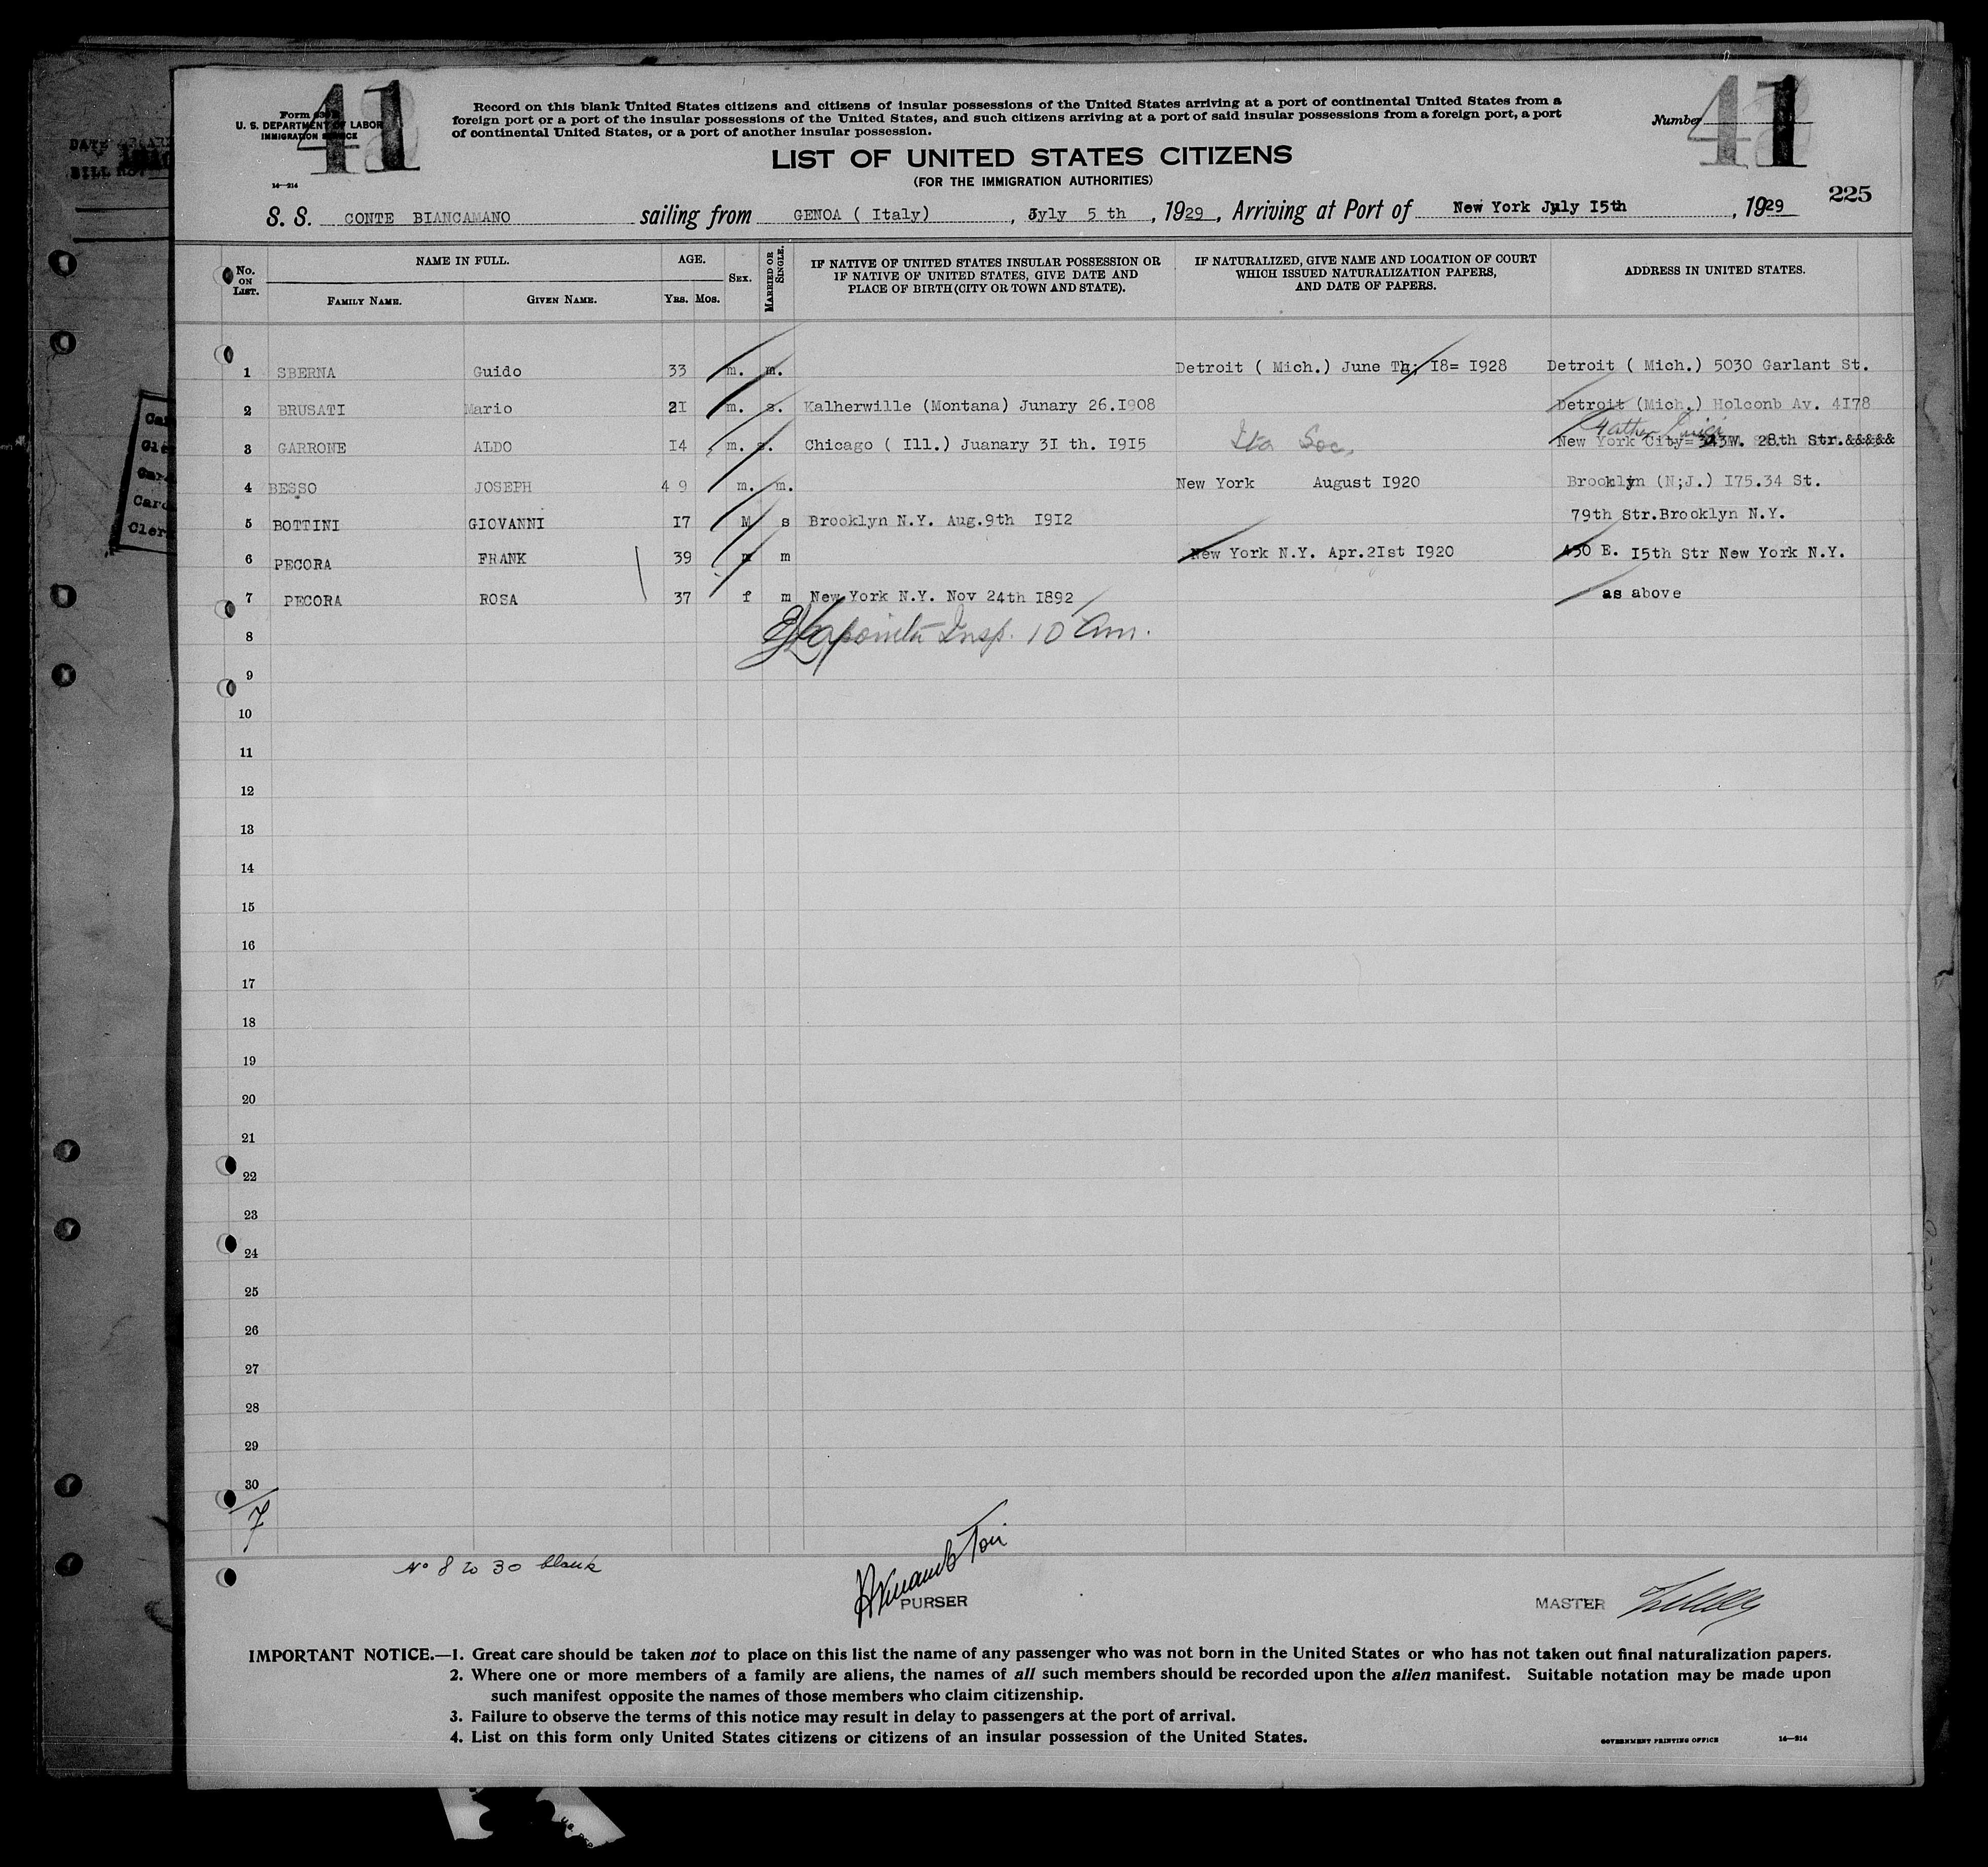 41
41
Form
U. S. DEPARTMENT OF LABOR
IMMIGRATION SERVICE
14—214
Record on this blank United States citizens and citizens of insular possessions of the United States arriving at a port of continental United States from a
foreign port or a port of the insular possessions of the United States, and such citizens arriving at a port of said insular possessions from a foreign port, a port
of continental United States, or a port of another insular possession.
Number
LIST OF UNITED STATES CITIZENS
(FOR THE IMMIGRATION AUTHORITIES)
225
S. S. CONTE BIANCAMANO sailing from GENOA ( Italy) , Jyly 5 th , 1929 , Arriving at Port of New York July I5th , 1929
No. ON LIST. NAME IN FULL. AGE. SEX. MARRIED OR SINGLE. IF NATIVE OF UNITED STATES INSULAR POSSESSION OR IF NATIVE OF UNITED STATES, GIVE DATE AND PLACE OF BIRTH (CITY OR TOWN AND STATE). IF NATURALIZED, GIVE NAME AND LOCATION OF COURT WHICH ISSUED NATURALIZATION PAPERS, AND DATE OF PAPERS. ADDRESS IN UNITED STATES.
FAMILY NAME. GIVEN NAME. YRS. MOS.
1 SBERNA Guido 33 m. m. Detroit ( Mich.) June Th; I8= I928 Detroit ( Mich.) 5030 Garlant St.
2 BRUSATI Mario 2I m. s. Kalherwille (Montana) Junary 26.I908 Detroit (Mich.) Holconb Av. 4I78
Father
3 GARRONE ALDO I4 m. s. Chicago ( Ill.) Juanary 3I th. I9I5 New York City= 343W. 28th Str.&&&&&
4 BESSO JOSEPH 4 9 m. m. New York August I920 Brooklyn (N;J.) I75.34 St.
5 BOTTINI GIOVANNI I7 M s Brooklyn N.Y. Aug.9th I9I2 79th Str.Brooklyn N.Y.
6 PECORA FRANK 39 m m New York N.Y. Apr.2Ist I920 430 E. I5th Str New York N.Y.
7 PECORA ROSA 37 f m New York N.Y. Nov 24th I892 as above
8 Insp. 10 am.
9
10
11
12
13
14
15
16
17
18
19
20
21
22
23
24
25
26
27
28
29
30
7
No 8 to 30 blank
PURSER
MASTER
IMPORTANT NOTICE.—1. Great care should be taken not to place on this list the name of any passenger who was not born in the United States or who has not taken out final naturalization papers.
2. Where one or more members of a family are aliens, the names of all such members should be recorded upon the alien manifest. Suitable notation may be made upon
such manifest opposite the names of those members who claim citizenship.
3. Failure to observe the terms of this notice may result in delay to passengers at the port of arrival.
4. List on this form only United States citizens or citizens of an insular possession of the United States.
GOVERNMENT PRINTING OFFICE 14—214